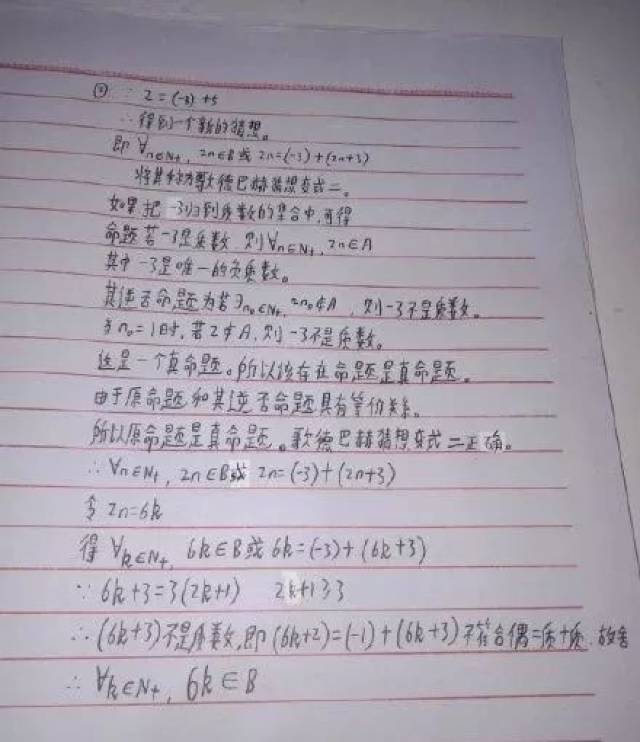 ② ∵ 2=(-3)+5
∴得到一个新的猜想。
即 ∀n∈N+, 2n∈B或 2n=(-3)+(2n+3)
将其称为歌德巴赫猜想变式二。
如果把 -3归到质数的集合中,可得
命题若-3是质数 则∀n∈N+, 2n∈A
其中-3是唯一的负质数。
其逆否命题为若∃n₀∈N+, 2n₀∉A, 则-3不是质数。
当n₀=1时, 若2∉A, 则-3不是质数。
这是一个真命题。所以该存在命题是真命题。
由于原命题和其逆否命题具有等价关系。
所以原命题是真命题。歌德巴赫猜想变式二正确。
∴∀n∈N+, 2n∈B或 2n=(-3)+(2n+3)
令2n=6k
得 ∀k∈N+, 6k∈B或 6k=(-3)+(6k+3)
∵ 6k+3=3(2k+1) 2k+1≥3
∴(6k+3)不是质数,即(6k+2)=(-1)+(6k+3)不符合偶=质+质,故舍
∴ ∀k∈N+, 6k∈B